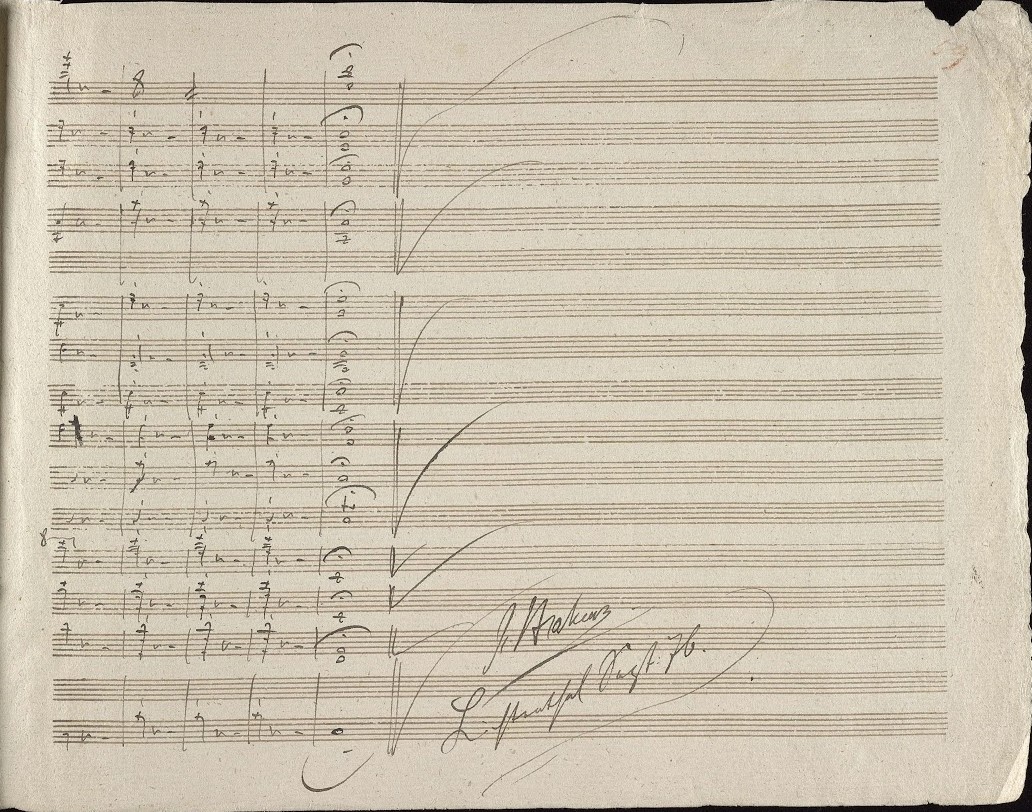 J. Brahms
Lichtenthal Sept. 76.